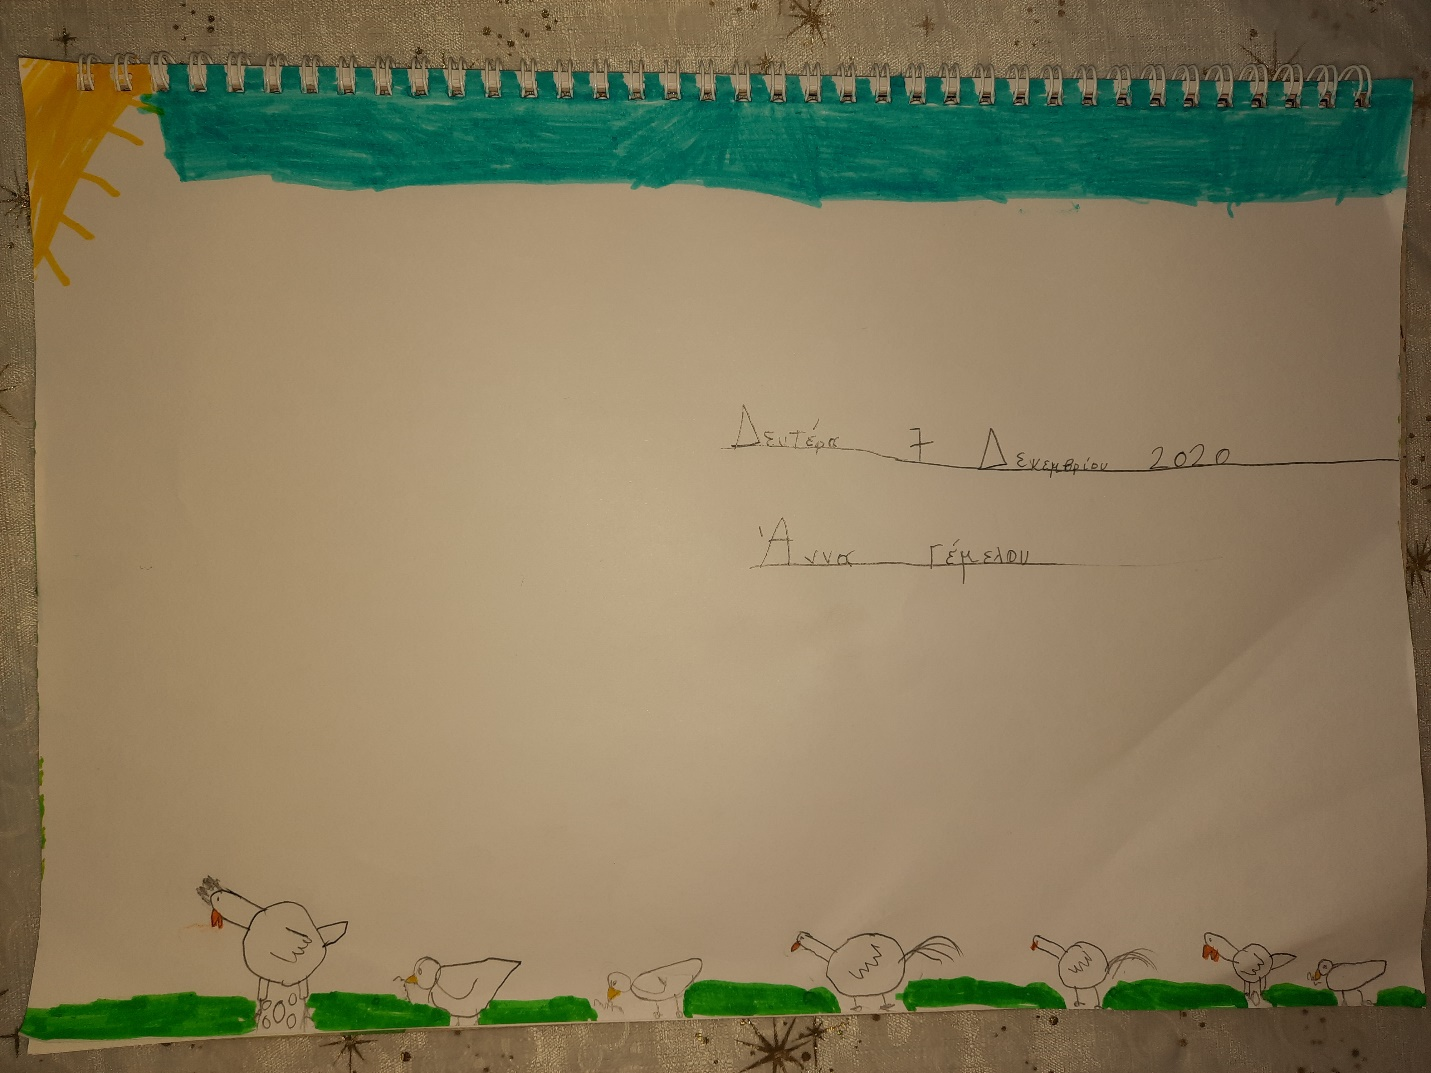 Δευτέρα 7 Δεκεμβρίου 2020
Άννα Γέμελου